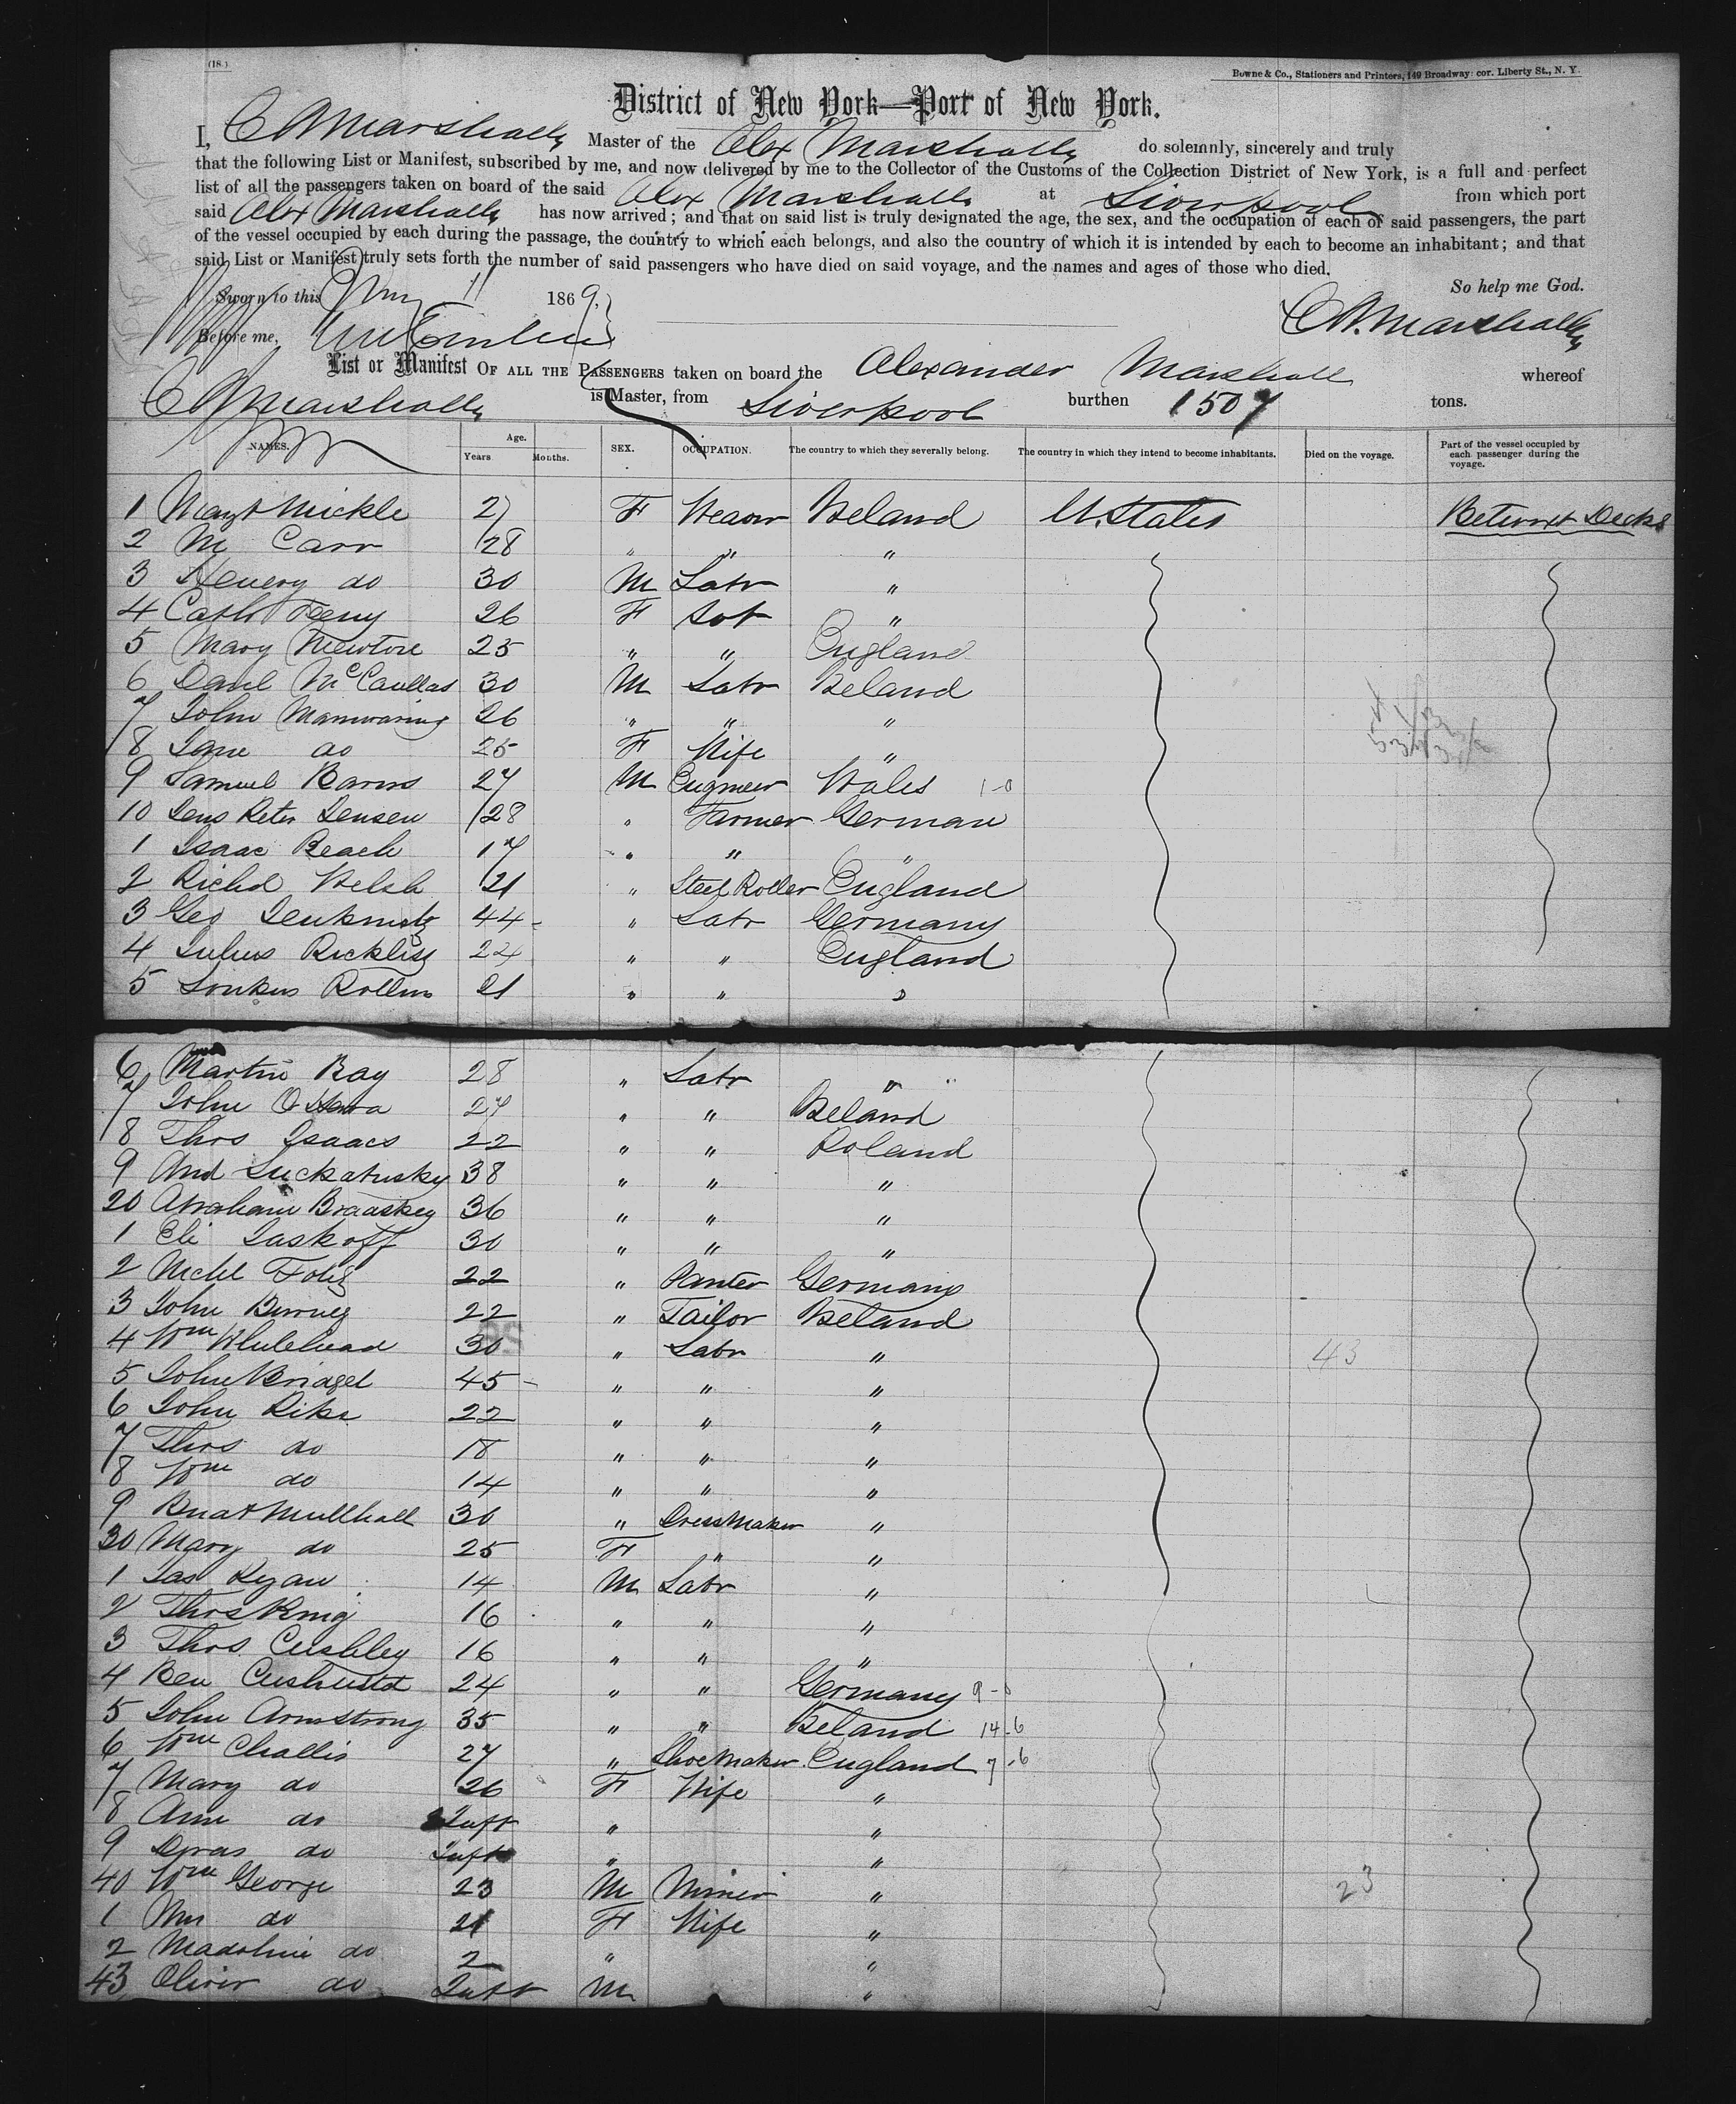 (18.)
Bowne & Co., Stationers and Printers, 149 Broadway cor. Liberty St., N. Y.
District of New York—Port of New York.
I, C A Marshall, Master of the Alex Marshall, do solemnly, sincerely and truly
that the following List or Manifest, subscribed by me, and now delivered by me to the Collector of the Customs of the Collection District of New York, is a full and perfect
list of all the passengers taken on board of the said Alex Marshall at Liverpool from which port
said Alex Marshall has now arrived; and that on said list is truly designated the age, the sex, and the occupation of each of said passengers, the part
of the vessel occupied by each during the passage, the country to which each belongs, and also the country of which it is intended by each to become an inhabitant; and that
said List or Manifest truly sets forth the number of said passengers who have died on said voyage, and the names and ages of those who died.
So help me God.
Sworn to this 11 1869.
Before me,
C A. Marshall
List or Manifest OF ALL THE PASSENGERS taken on board the Alexander Marshall whereof
C A Marshall is Master, from Liverpool burthen 1507 tons.
NAMES. Age. Years Months. SEX. OCCUPATION. The country to which they severally belong. The country in which they intend to become inhabitants. Died on the voyage. Part of the vessel occupied by each passenger during the voyage.
1 Mickle 27 F Ireland U. States Betwixt Decks
2 M Carr 28 " " "
3 Henery do 30 M Labr "
4 Cath 26 F "
5 Mary Newton 25 " " England
6 Danl McCaullas 30 M Labr Ireland
7 John Manwaring 26 " " "
8 Jane do 25 F Wife "
9 Samuel Barns 27 M Engineer Wales 1-0
10 Jens Peter Jensen 28 " Farmer German
1 Isaac Beach 17 " " "
2 Richd Welsh 21 " Steel Roller England
3 Geo 44 - " Labr Germany
4 Julius 24 " " England
5 Rollin 21 " " "
6 Martin Ray 28 " Labr "
7 John O Hara 27 " " Ireland
8 Thos Isaacs 22 " " Poland
9 And 38 " " "
20 Abraham Braaskey 36 " " "
1 Eli Laskoff 30 " " "
2 Michl Foltz 22 " Panter Germany
3 John 22 " Tailor Ireland
4 Wm Whitehead 30 " Labr " 43
5 John 45 - " " "
6 John Pike 22 " " "
7 Thos do 18 " " "
8 Wm do 14 " " "
9 Mullhall 30 " DressMaker "
30 Mary do 25 F " "
1 Jas Ryan 14 M Labr "
2 Thos King 16 " " "
3 Thos Cushley 16 " " "
4 Ben 24 " " Germany 9-0
5 John Armstrong 35 " " Ireland 14-6
6 Wm Challis 27 " ShoeMaker England 7-6
7 Mary do 26 F Wife "
8 Ann do Inft " "
9 do Inft " "
40 Wm George 23 M Miner " 23
1 do 21 F Wife "
2 Madoline do 2 " "
43 Oliver do Inft M "